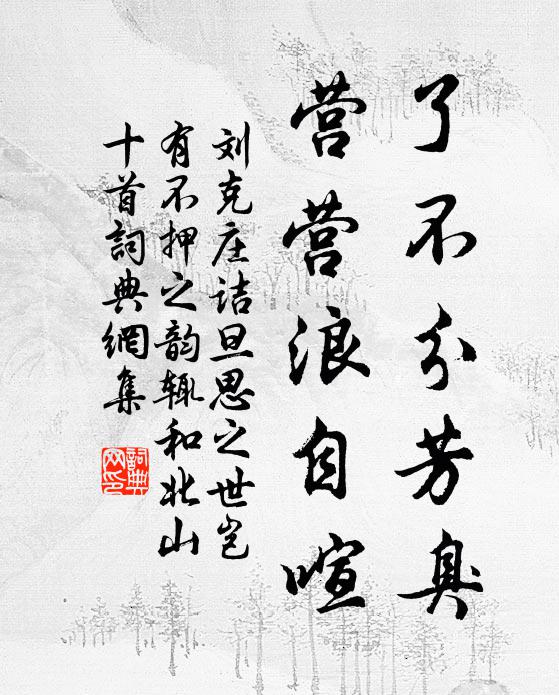 了不分芳臭
营营浪自喧
刘克庄诘旦思之世岂
有不押之韵辄和北山
十首詞典網集
詞典
网印